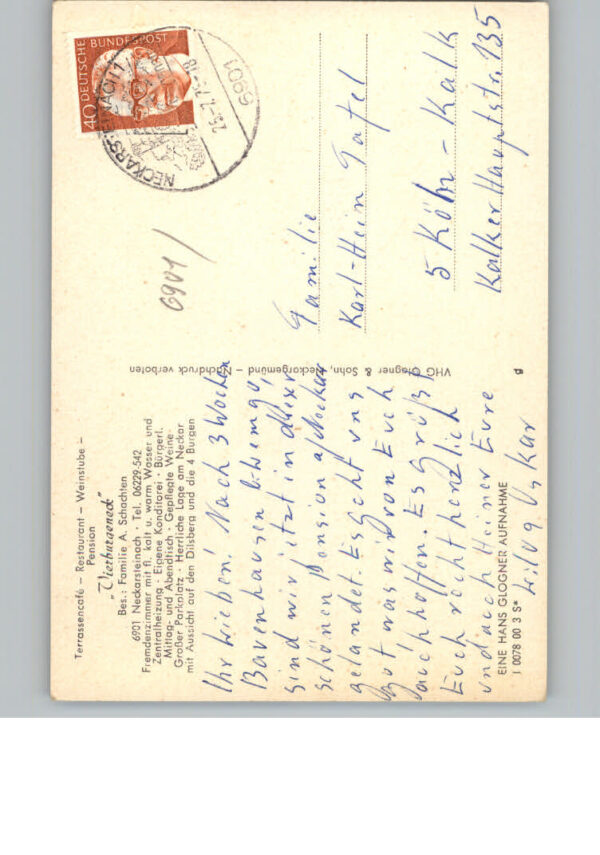 Terrassencafé – Restaurant – Weinstube –
Pension
„Vierburgeneck"
Bes.: Familie A. Schachten
6901 Neckarsteinach · Tel. 06229-542
Fremdenzimmer mit fl. kalt u. warm Wasser und
Zentralheizung · Eigene Konditorei · Bürgerl.
Mittag- und Abendtisch · Gepflegte Weine
Großer Parkplatz · Herrliche Lage am Neckar
mit Aussicht auf den Dilsberg und die 4 Burgen
Ihr Lieben! Nach 3 Wochen
sind wir jetzt in dieser
schönen Pension a/Neckar
gelandet. Es geht uns
gut was wir von Euch
auch hoffen. Es grüßt
Euch recht herzlich
und auch Heiner Eure
EINE HANS GLOGNER AUFNAHME
I 0078 00 3 S*
VHG Glogner & Sohn, Neckargemünd – Nachdruck verboten
g
DEUTSCHE BUNDESPOST
40
6901
6901/
Familie
Karl-Hein
5 Köln-Kalk
Kalker Hauptstr. 135